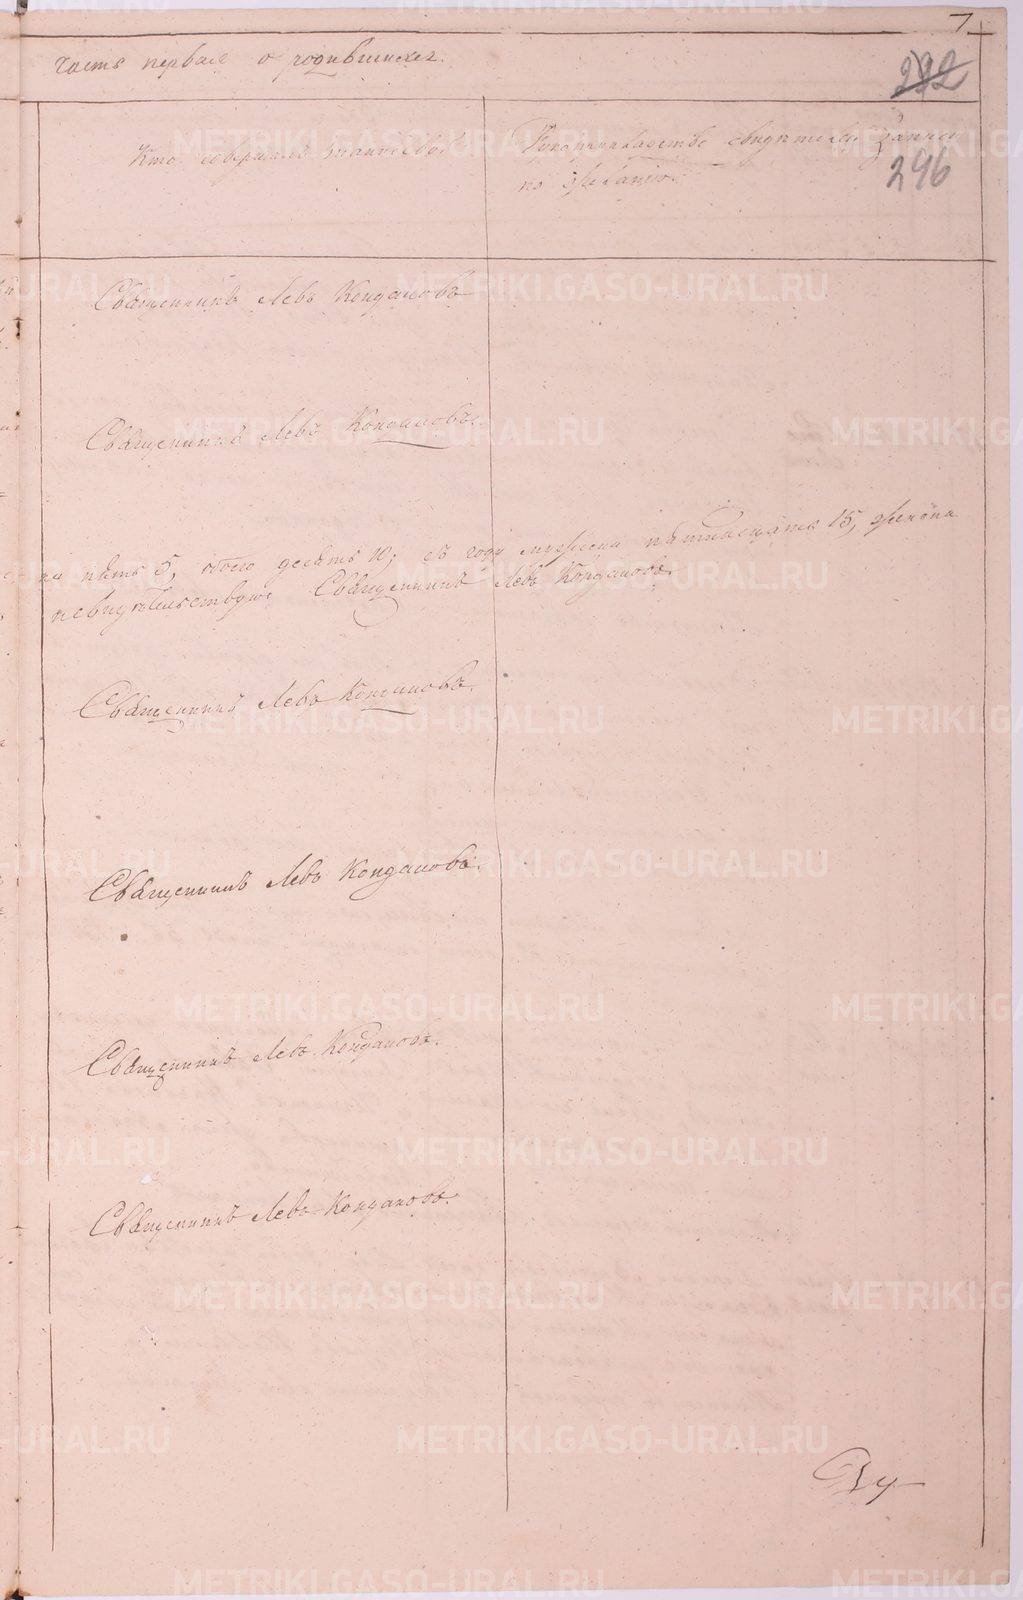 7
часть первая о родившихся.
292
Кто совершалъ таинство.
Рукоприкладство свидѣтелей записи
по желанію.
296
Священникъ Левъ Кондаковъ
Священникъ Левъ Кондаковъ.
на пять 5, обоего десять 10; съ году мужеска пятнадцать 15, женска
Священникъ Левъ Кондаковъ.
Священникъ Левъ Кондаковъ.
Священникъ Левъ Кондаковъ.
Священникъ Левъ Кондаковъ.
Священникъ Левъ Кондаковъ.
METRIKI.GASO-URAL.RU